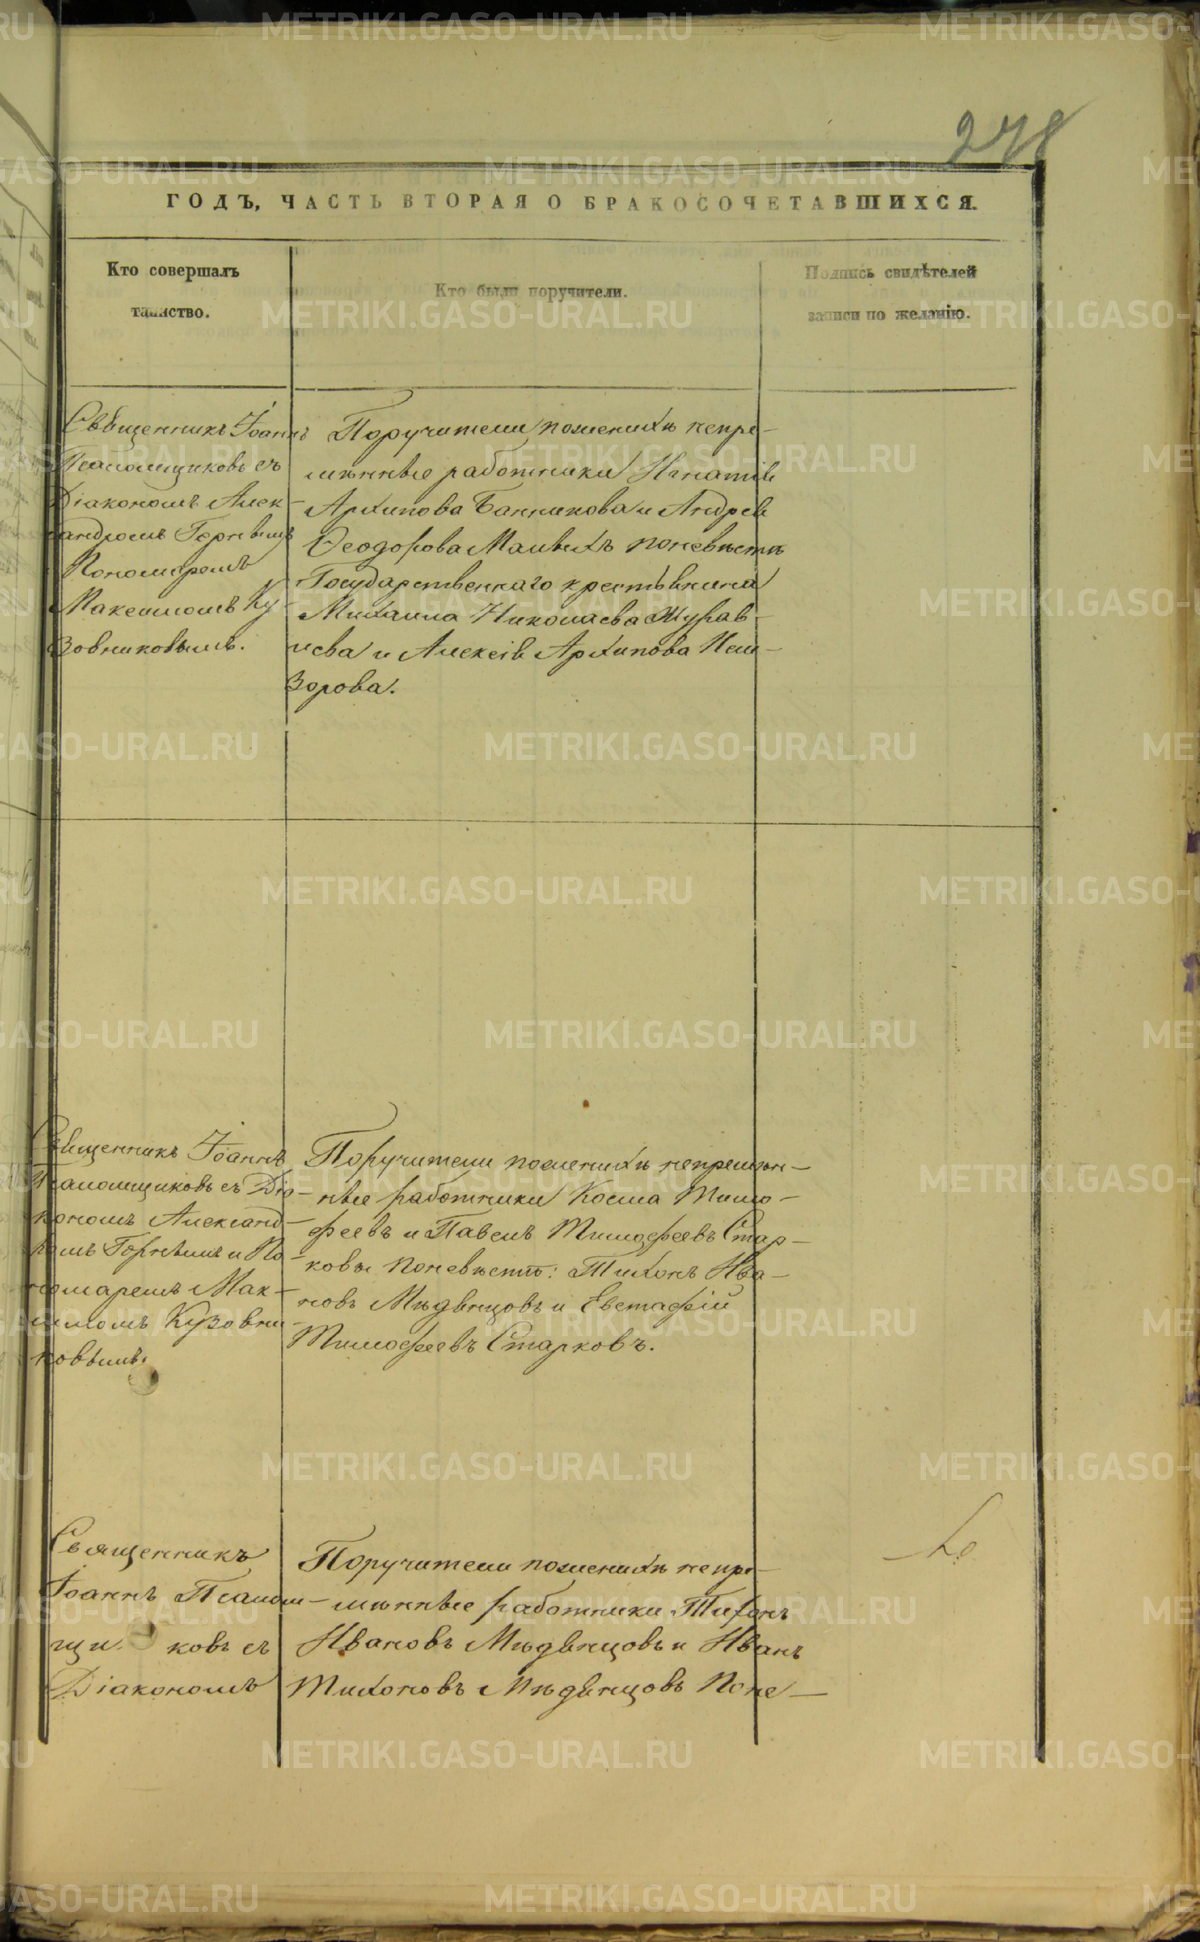 278
ГОДЪ, ЧАСТЬ ВТОРАЯ О БРАКОСОЧЕТАВШИХСЯ.
Кто совершалъ
таинство.
Кто были поручители.
Подпись свидѣтелей
записи по желанію.
Священникъ Іоаннъ
Псаломщиковъ съ
Діакономъ Алек-
сандромъ Горнымъ
Пономаремъ
Максимомъ Ку-
зовниковымъ.
Поручители пожениххѣ непре-
мѣнные работники Игнатій
Архипова Банникова и Андрей
Ѳеодорова Малыхъ поневѣстѣ
Государственнаго крестьянина
Михаила Николаева Журав-
лева и Алексѣй Архипова
Священникъ Іоаннъ
Псаломщиковъ съ Діа-
кономъ Александ-
ромъ Горнымъ и По-
номаремъ Мак-
симомъ Кузовни-
ковымъ.
Поручители поженихѣ непремѣн-
ные работники Косма Тимо-
феевъ и Павелъ Тимофеевъ Стар-
ковы поневѣстѣ: Тихонъ Ива-
новъ Мѣдвинцовъ и Евстафій
Тимофеевъ Старковъ.
Священникъ
Іоаннъ Псалом-
щиковъ съ
Діакономъ
Поручители поженихѣ непре-
мѣнные работники Тихонъ
Ивановъ Мѣдвинцовъ и Иванъ
Тихоновъ Мѣдвинцовъ Поне-
METRIKI.GASO-URAL.RU